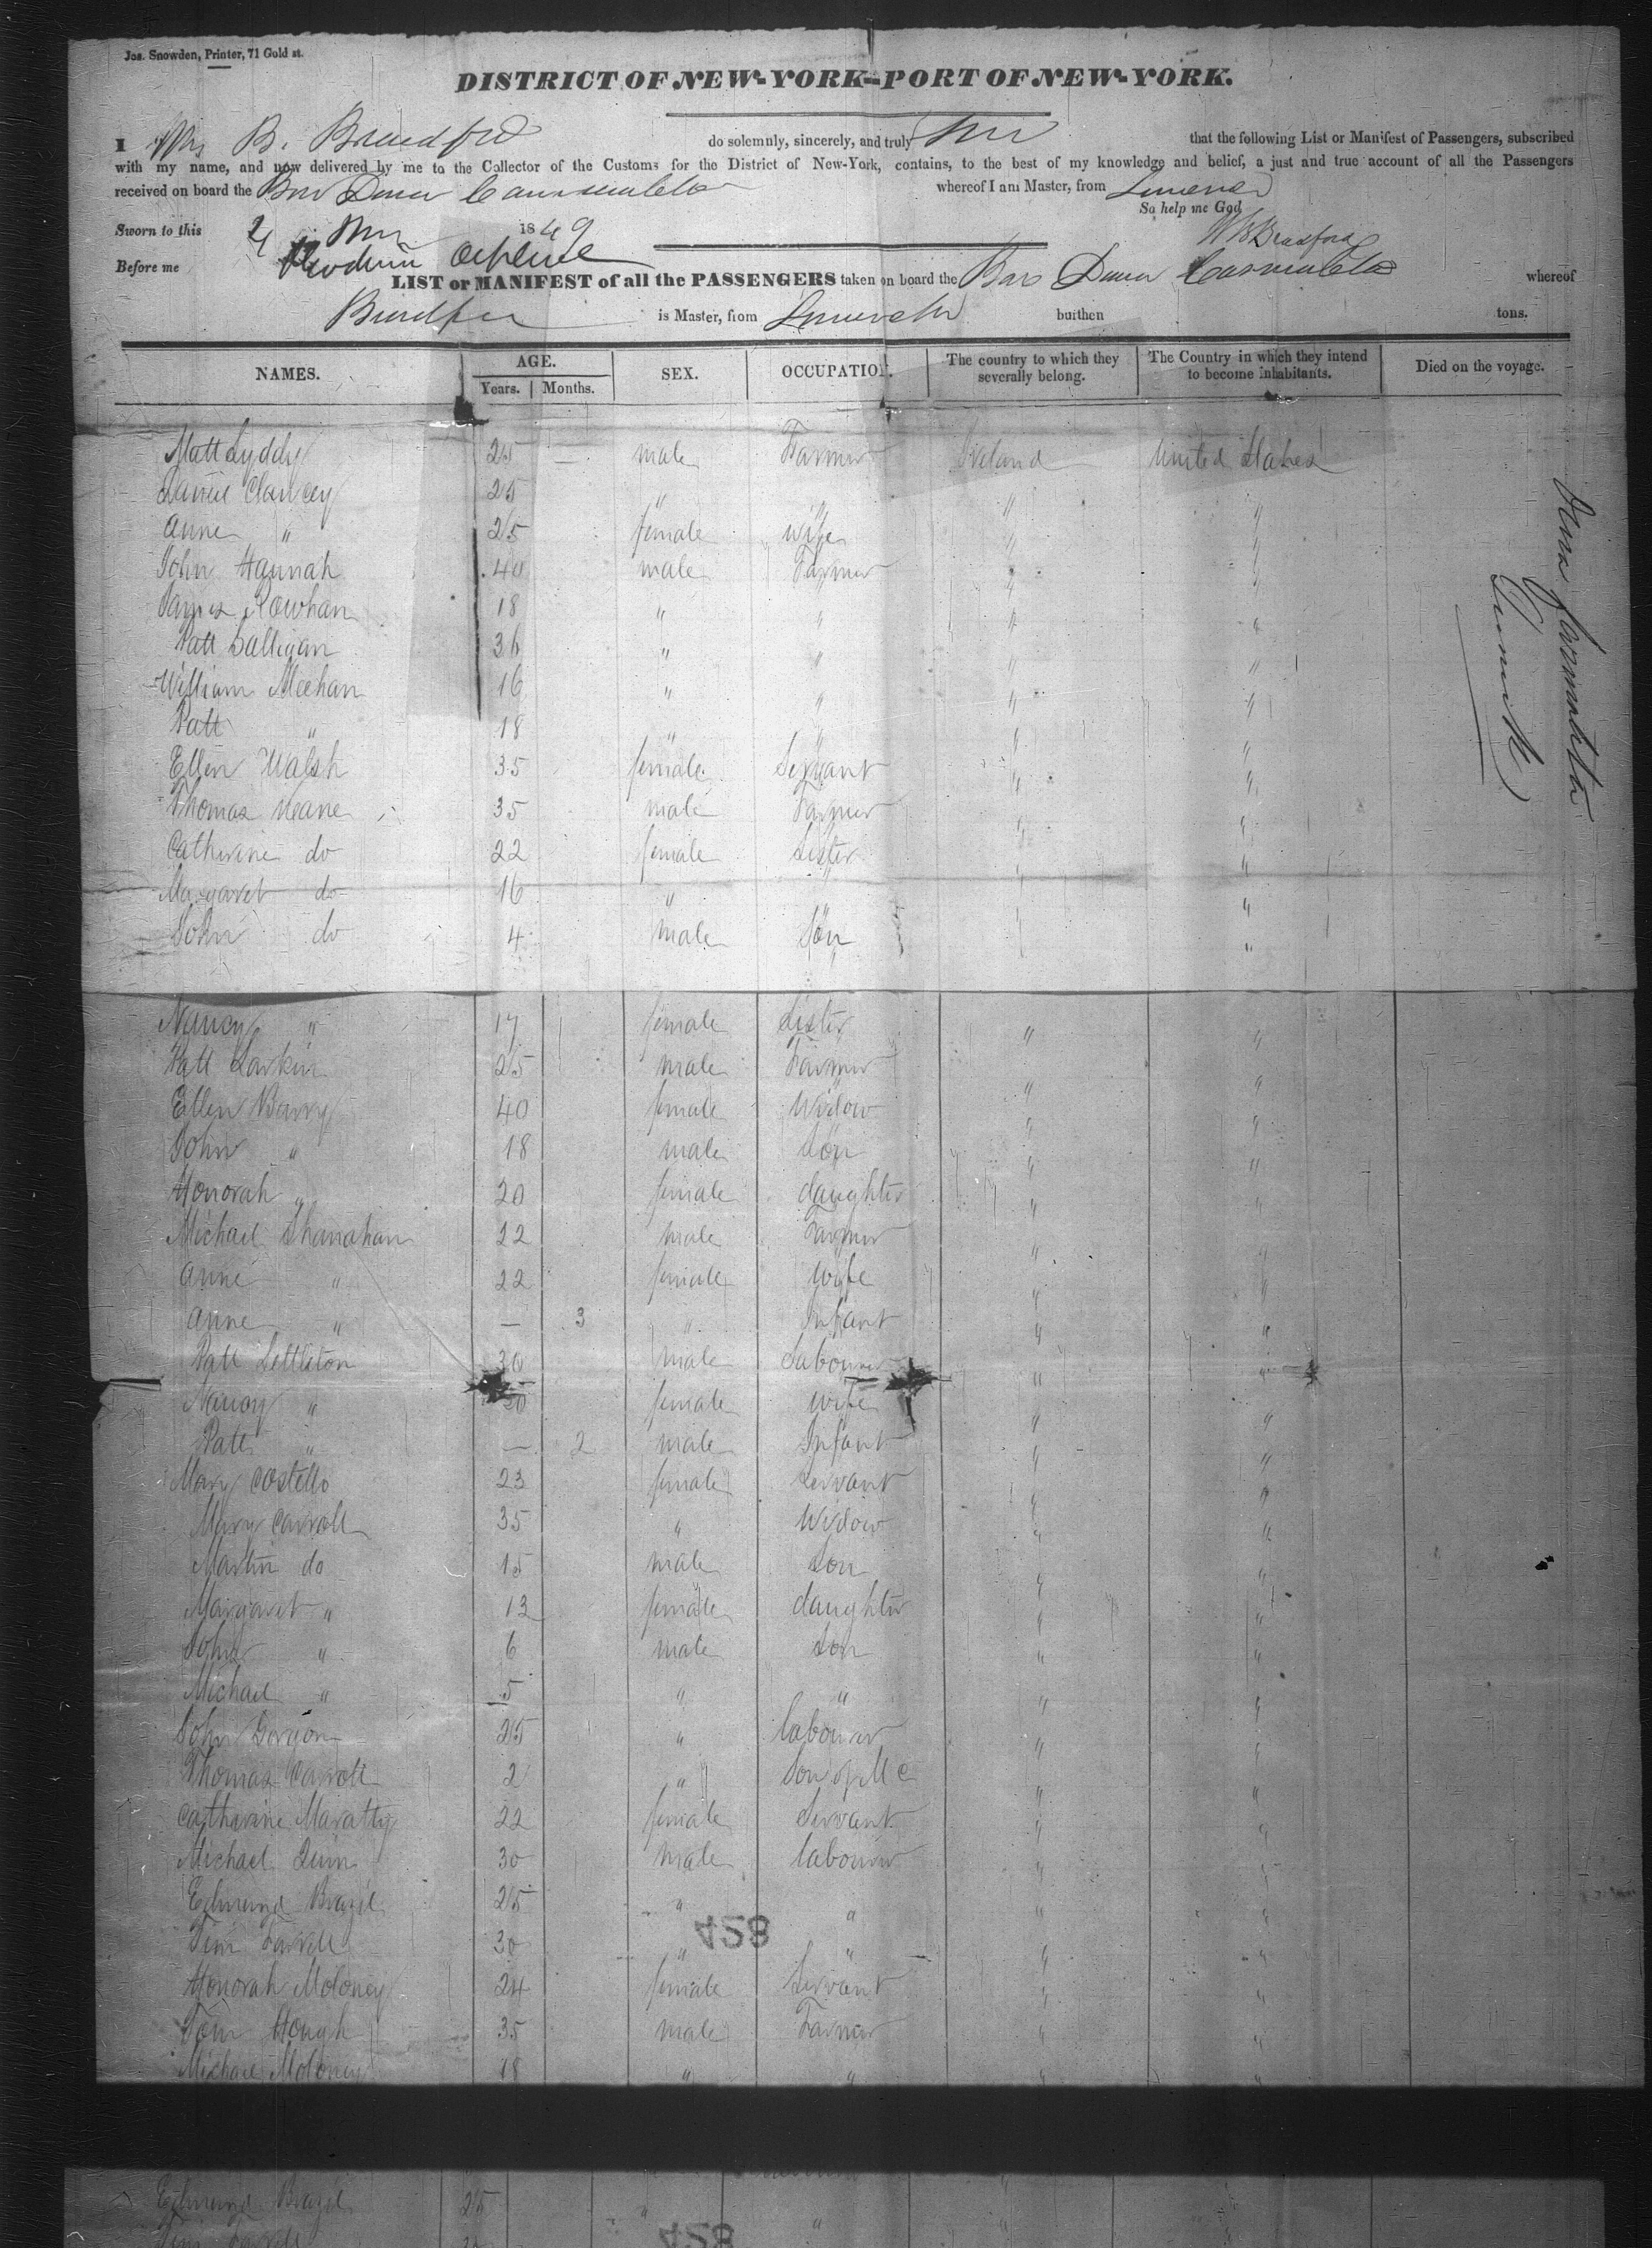 Jos. Snowden, Printer, 71 Gold st.
DISTRICT OF NEW-YORK--PORT OF NEW-YORK.
I Wm B. Bradford do solemnly, sincerely, and truly that the following List or Manifest of Passengers, subscribed
with my name, and now delivered by me to the Collector of the Customs for the District of New-York, contains, to the best of my knowledge and belief, a just and true account of all the Passengers
received on board the whereof I am Master, from
So help me God
Sworn to this 1849
W B Bradford
Before me
LIST or MANIFEST of all the PASSENGERS taken on board the whereof
is Master, from burthen tons.
NAMES. AGE. Years. Months. SEX. OCCUPATION. The country to which they severally belong. The Country in which they intend to become inhabitants. Died on the voyage.
Matt Lyddy 25 — male Farmer Ireland United States
Clancey 25 " " " "
Anne " 25 female wife " "
John Hannah 40 male Farmer " "
James 18 " " " "
Patt 36 " " " "
William Meehan 16 " " " "
Patt " 18 " " " "
Ellen Walsh 35 female Servant " "
Thomas 35 male Farmer " "
Catherine do 22 female Sister " "
Margaret do 16 " " " "
John do 4 male Son " "
Nancy " 17 female Sister " "
Patt Larkin 25 male Farmer " "
Ellen Barry 40 female Widow " "
John " 18 male Son " "
Honorah " 20 female daughter " "
Michael Shanahan 22 male Farmer " "
Anne " 22 female wife " "
Anne " — 3 " Infant " "
Patt Lettleton 30 male Labourer " "
Nancy " 20 female wife " "
Patt " — 2 male Infant " "
Mary Costello 23 female Servant " "
Mary Carroll 35 " Widow " "
Martin do 15 male Son " "
Margaret " 13 female daughter " "
John " 6 male Son " "
Michael " 5 " " " "
John 25 " labourer " "
Thomas Carroll 2 " Son of M C " "
Catherine Maratty 22 female Servant " "
Michael Quin 30 male labourer " "
Edmund Brazil 25 " " " "
Tim Farrell 30 " " " "
428
Honorah Moloney 24 female Servant " "
Tom Hough 35 male Farmer " "
Michael Moloney 18 " " " "
Edmund Brazil 25 " "
Tim Farrell 30
428